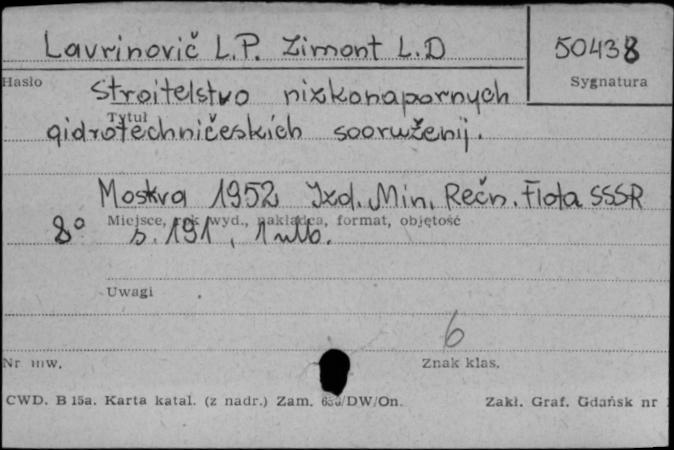 Lavrinovič L.P. Zimont L.D 50438
Hasło Sygnatura
Stroitelstvo nizkonapornych
Tytuł
gidrotechničeskich sooruženij.
Moskva 1952 Izd. Min. Rečn. Flota SSSR
Miejsce, rok wyd., nakładca, format, objętość
8° s. 191, 1 nlb.
Uwagi
6
Nr inw. Znak klas.
CWD. B 15a. Karta katal. (z nadr.) Zam. /DW/On. Zakł. Graf. Gdańsk nr